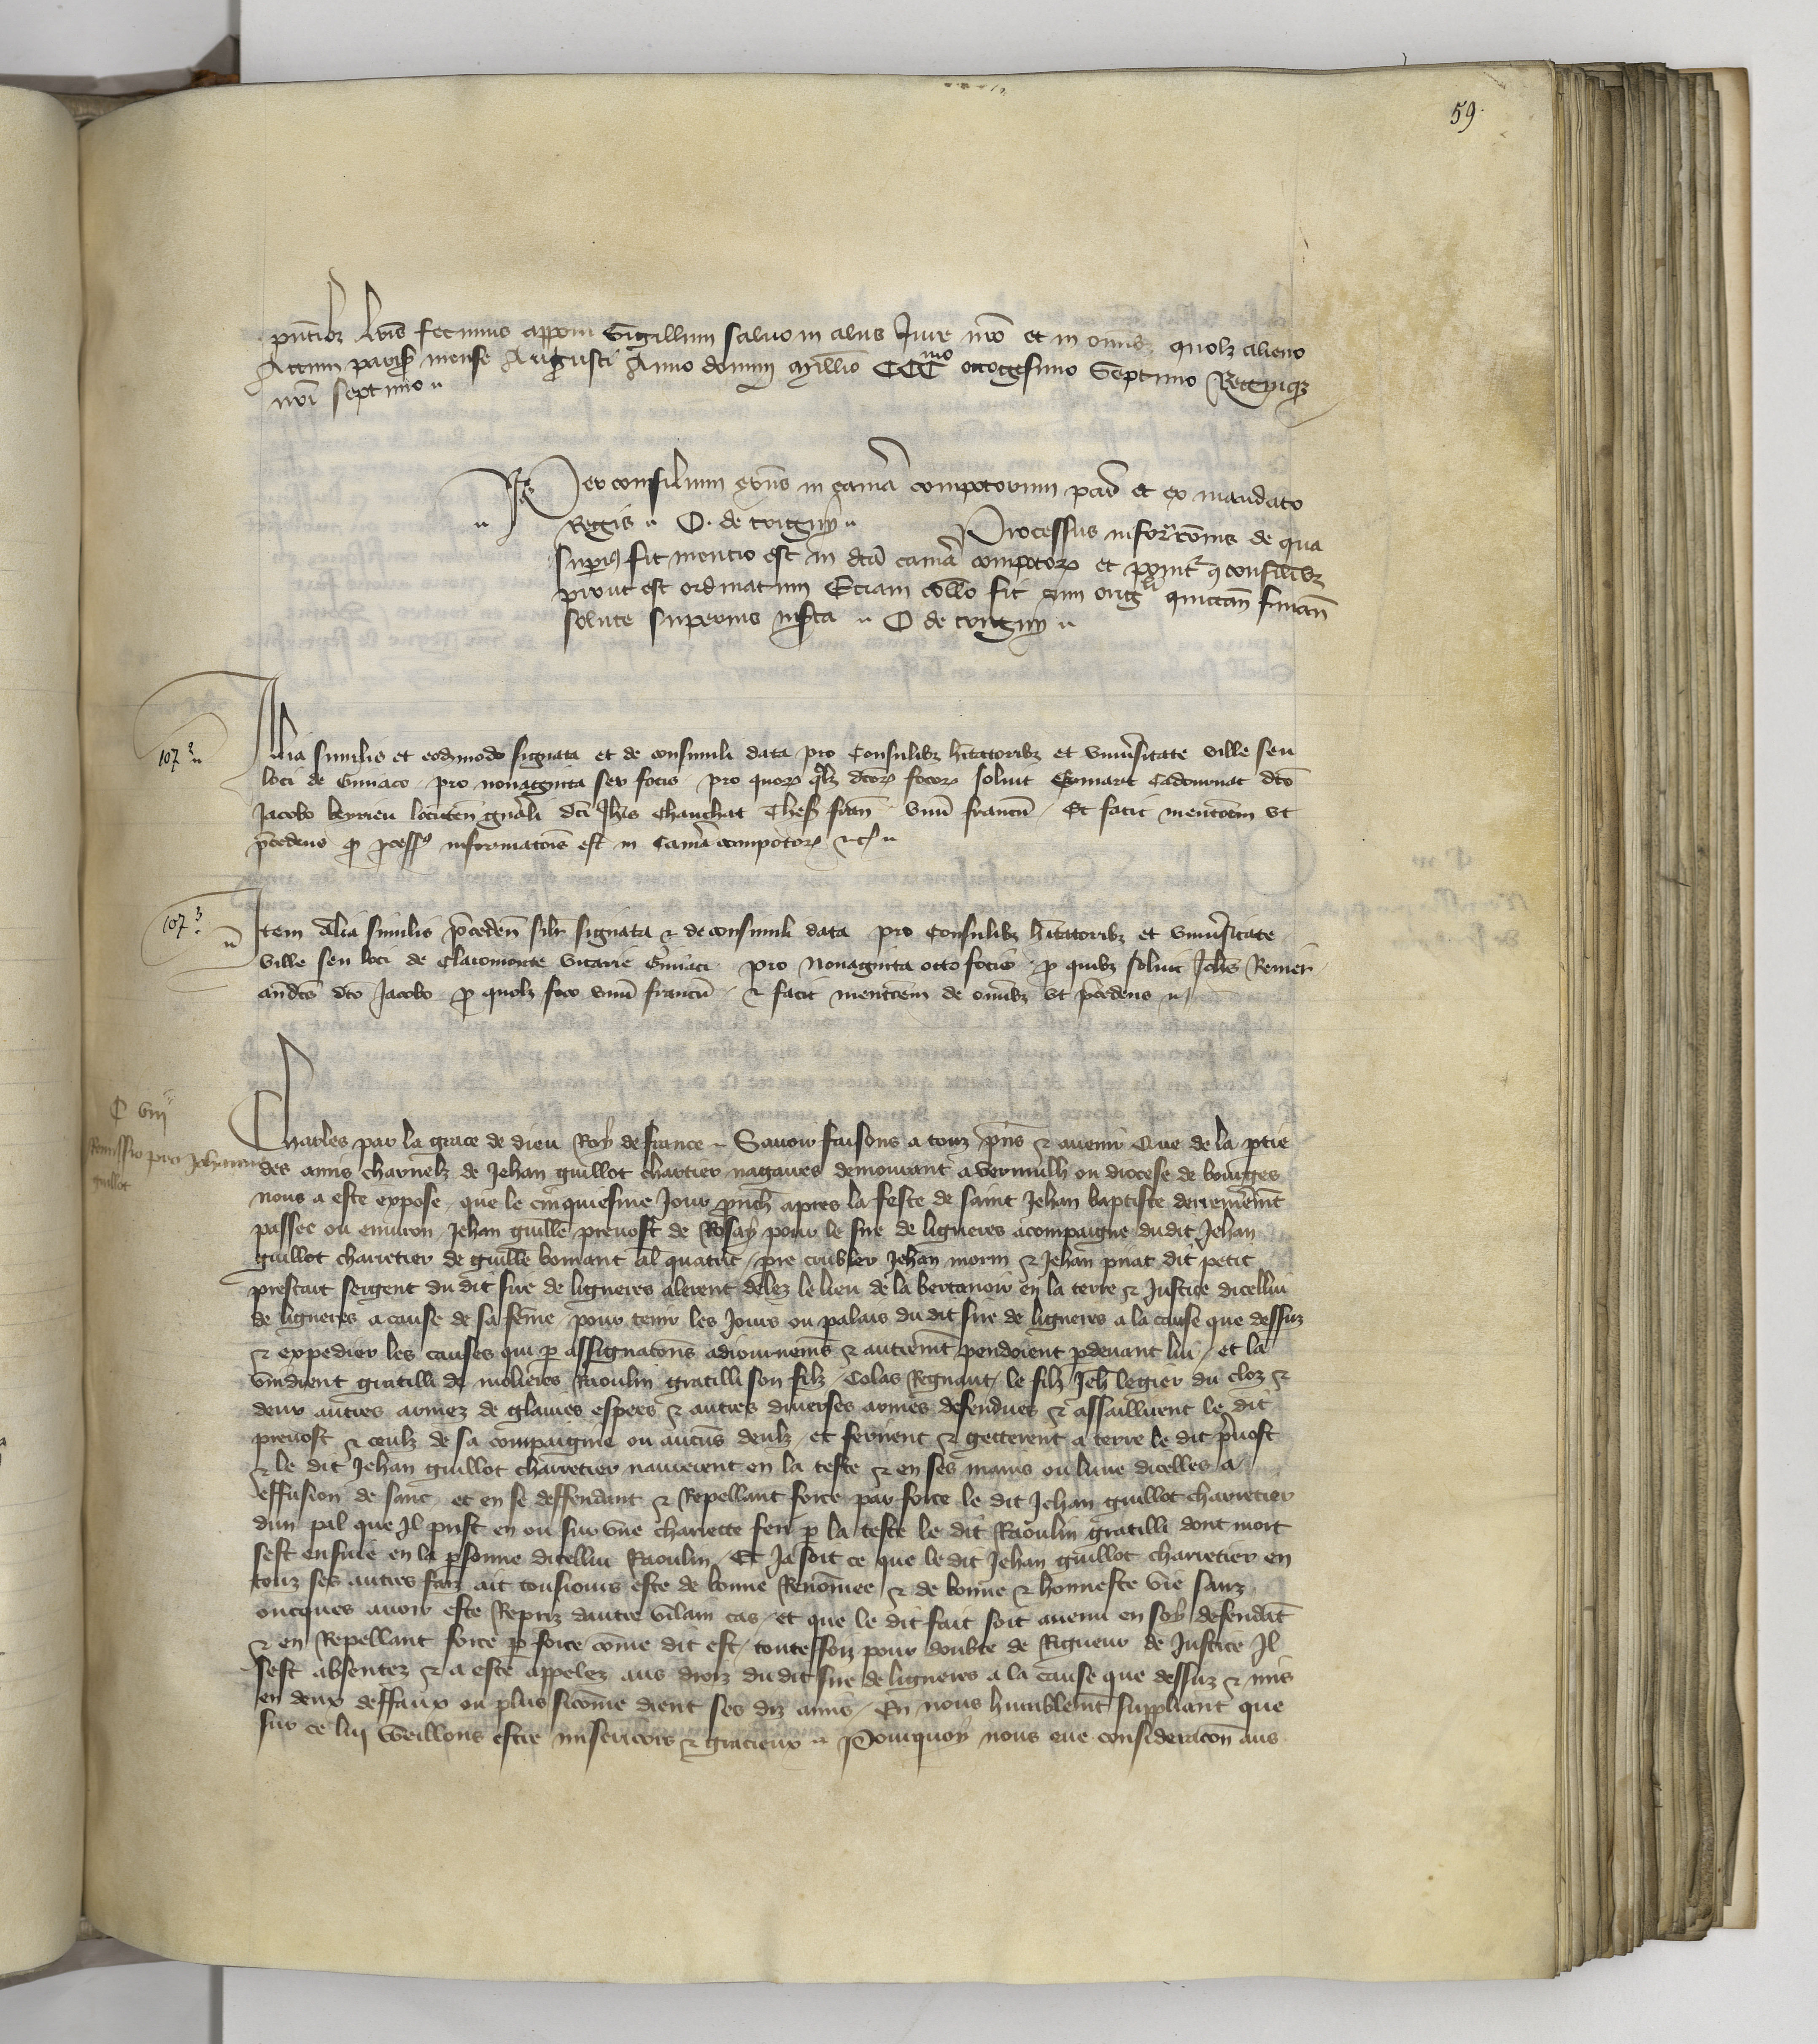 59.
pntibz lris fecimus apponi Sigillum saluo in aliis Jure nro et in omibz quolz alieno
Actum parisius mense Augusti Anno domini Millio CCCmo octogesimo Septimo Regniqz
nri septimo
Per consilium exns in camera compotorum paris et ex mandato
Regis O. de trigny Processus informacōnis de qua
superius fit mencio est in dca camera compotorz et ponitur consilibz
prout est ordinatum Eciam collo fit cum origli quittan finan
solute superius inserta O de trigny
107.2
Alia similis et eodmodo signata et de consimili data pro Consulibz hitatoribz et vniuersitate ville seu
loci de Giniaco pro nonaginta sex focis pro quorz qlz dcorz focorz soluit dco
Jacobo beyrieu locūten gnali dci Jhis Chauchat Thes fran vnū francū Et facit mentcōem vt
precedens processus informacōis est in Camera compotorz etc
107.3
Item Alia similis preceden silr signata & de consimili data pro Consulibz hitatoribz et vniuersitate
ville seu loci de Claromonte vicarie Giniaci pro Nonaginta octo focis p quibz soluit Johes Remer
dco Jacobo p quolz foco vnū francū & facit mentcōem de omibz vt precedens
C viii
Remissio pro Johanne
guillot
Charles par la grace de dieu Roy de france Sauoir faisons a touz pns & auenir Que de la ptie
des amis charnelz de Jehan guillot chartier nagaires demourant a vermilh ou diocese de bourges
nous a este expose que le cinquiesme Jour prouch apres la feste de saint Jehan baptiste derrenieremt
passee ou enuiron Jehan guille preuost de Rosay pour le sire de lignieres acompaigne dudit Jehan
guillot charretier de guille bomant al quatrit pre crubler Jehan morin & Jehan piat dit petit
prestait sergent du dit sire de lignieres alerent delez le lieu de la bertenoir en la terre & Justice dicellui
de lignieres a cause de sa feme pour tenir les Jours ou palais du dit sire de lignieres a la cause que dessuz
& expedier les causes qui p assignatons adiournemēs & autremt pendoient pdeuant lui et la
vindrent gratilli de molieres Raoulin gratilli son filz Colas Regnaut le filz Jeh legier du cloz &
deux autres armez de glaiues espees & autres diuerses armes defendues & assaillirent le dit
preuost & ceulz de sa compaignie ou aucuns deulz et ferirent & getterent a terre le dit preuost
& le dit Jehan guillot charretier naurerent en la teste & en ses mains ou lune dicelles a
effusion de sanc et en se deffendant & Repellant force par force le dit Jehan guillot charretier
dun pal que Il prist en ou sur vne charrette feri p la teste le dit Raoulin gratilli dont mort
sest ensuie en la psonne dicellui Raoulin Et Ja soit ce que le dit Jehan guillot charretier en
touz ses autres faiz ait tousiours este de bonne Renomee & de bonne & honneste vie sanz
oncques auoir este Repriz dautre vilain cas et que le dit fait soit auenu en soy defendāt
& en Repellant force p force cōme dit est toutesfoiz pour doubte de Rigueur de Justice Il
sest absentez & a este appelez aus droiz du dit sire de lignieres a la cause que dessuz & mis
en deux deffaux ou plus sicōme dient ses diz amis En nous humblemt suppliant que
sur ce lui veillons estre misericors & gracieux Pourquoy nous eue consideracōn aus